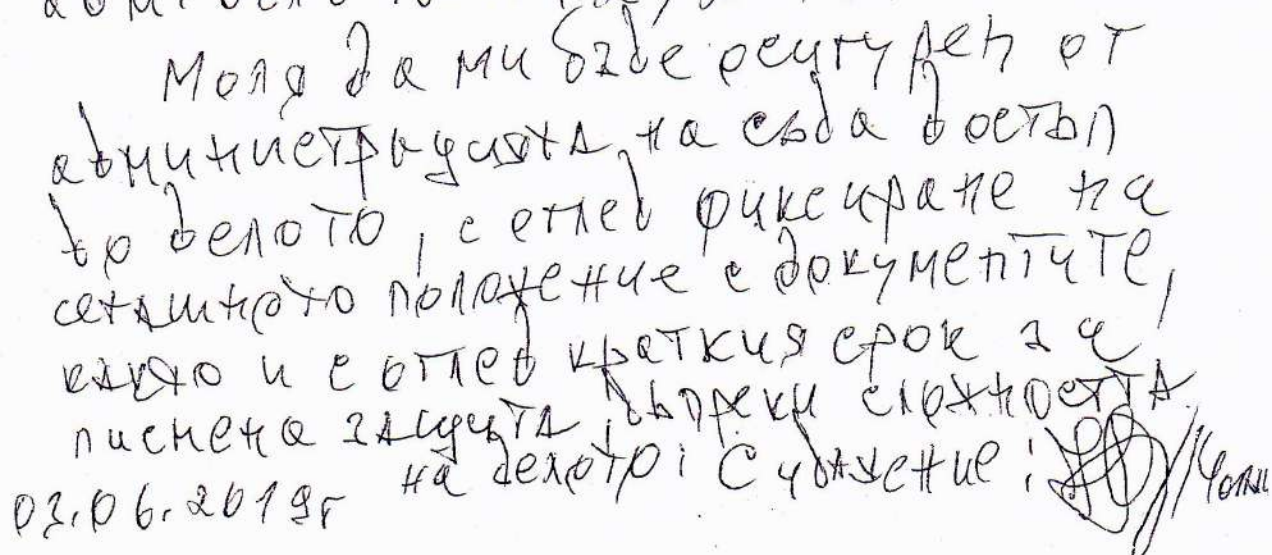 Моля да ми бъде осигурен от
администрацията на съда достъп
до делото, с оглед фиксиране на
сегашното положение с документите,
както и с оглед краткия срок за
писмена защита, въпреки сложността
на делото! С уважение:
03.06.2019г